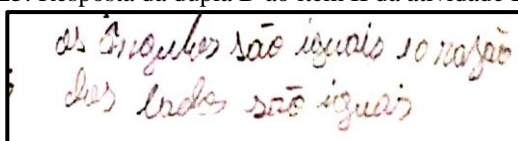 Resposta da dupla B ao item II da atividade
os ângulos são iguais e a razão
dos lados são iguais